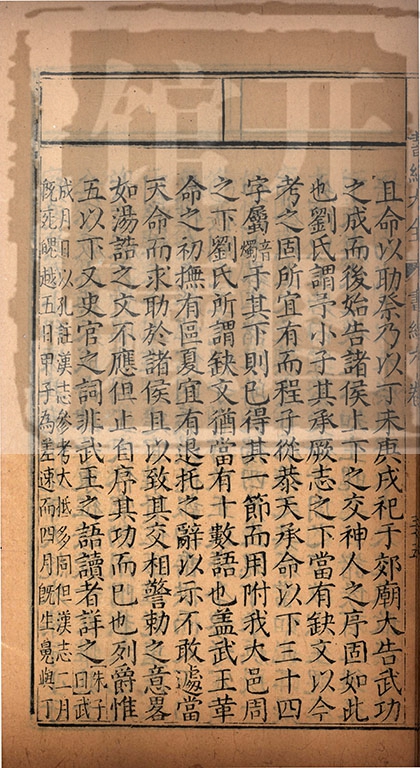 且命以助祭乃以丁未庚戌祀于郊廟大告武功
之成而後始告諸侯上下之交神人之序固如此
也劉氏謂予小子其承厥志之下當有缺文以今
考之固所宜有而程子從恭天承命以下三十四
字屬音燭于其下則已得其一節而用附我大邑周
之下劉氏所謂缺文猶當有十數語也盖武王革
命之初撫有區夏宜有退托之辭以示不敢遽當
天命而求助於諸侯且以致其交相警勅之意畧
如湯誥之文不應但止自序其功而已也列爵惟
五以下又史官之詞非武王之語讀者詳之朱子曰武
成月日以孔註漢志參考大抵多同但漢志二月
既死魄越五日甲子為差速而四月既生魄與丁